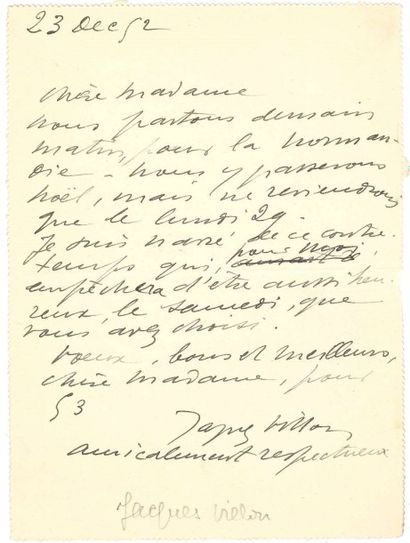 23 Dec 52
chère madame
nous partons demain
matin, pour la norman-
die - nous y passerons
noël, mais ne reviendrons
que le lundi 29.
Je suis navré de ce contre-
temps qui, pour moi,
empêchera d'être aussi heu-
reux, le samedi, que
vous avez choisi.
Voeux, bons et meilleurs,
chère madame, pour
53
Jacques Villon
amicalement respectueux
Jacques Villon